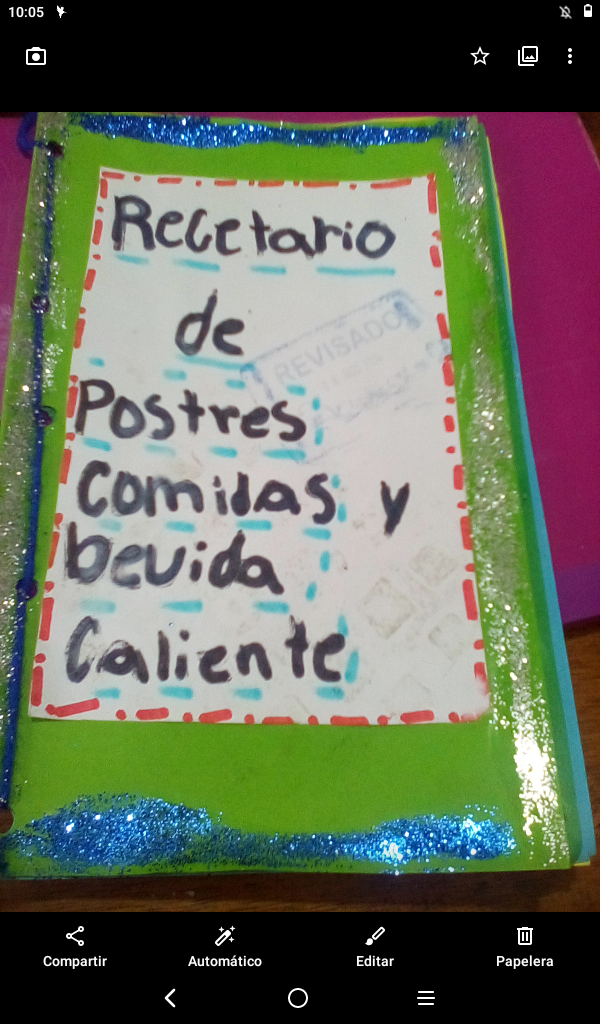 10:05
Recetario
de
REVISADO
Postres
Comidas y
bevida
Caliente
Compartir
Automático
Editar
Papelera